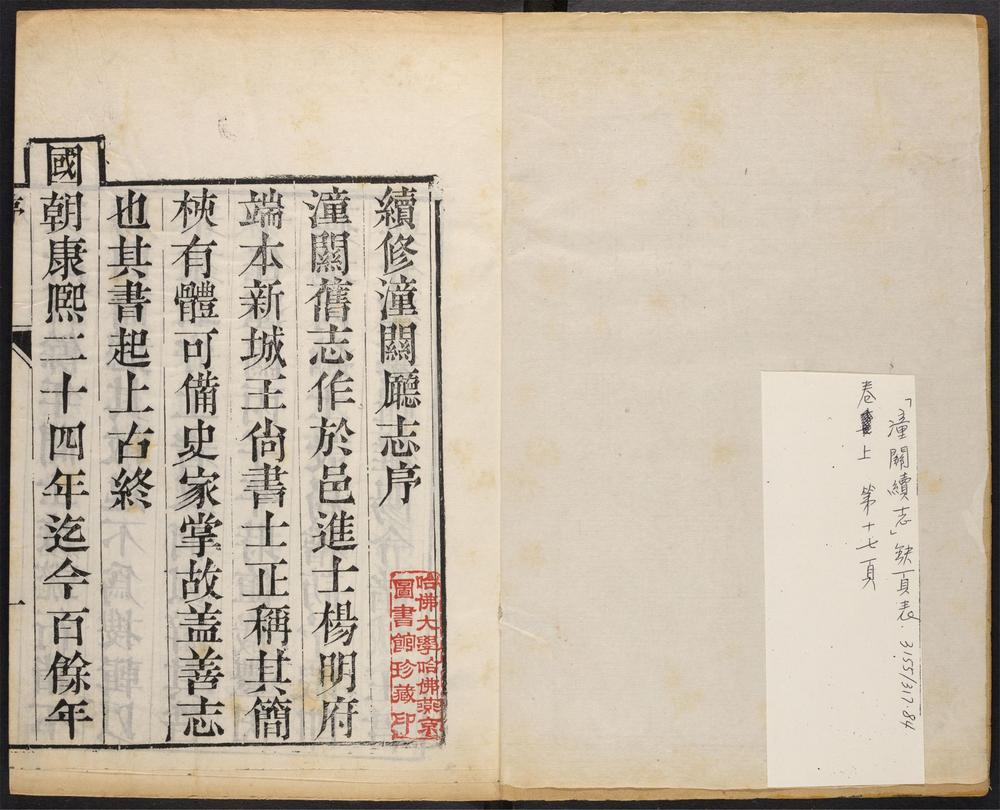 「潼關續志」缺頁表. 3155/317.84
卷上 第十七頁
續修潼關廳志序
潼關舊志作於邑進士楊明府
端本新城王尙書士正稱其簡
梜有體可備史家掌故盖善志
也其書起上古終
國朝康熙二十四年迄今百餘年
序
一
哈佛大學哈佛燕京
圖書館珍藏印